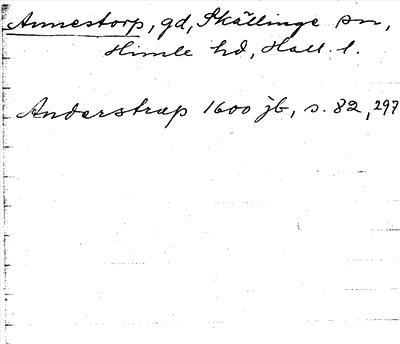 Annestorp, gd, Skällinge sn,
Himle hd, Hall. l.
Anderstrup 1600 jb, s. 82, 297